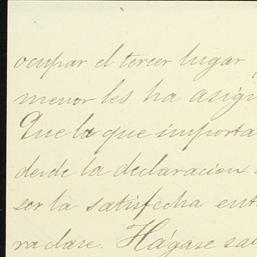 ocupar el tercer lugar
menor les ha asig
Que la que importa
desde la declaracion
ser la satisfecha ent
ra clase. Hágase sa